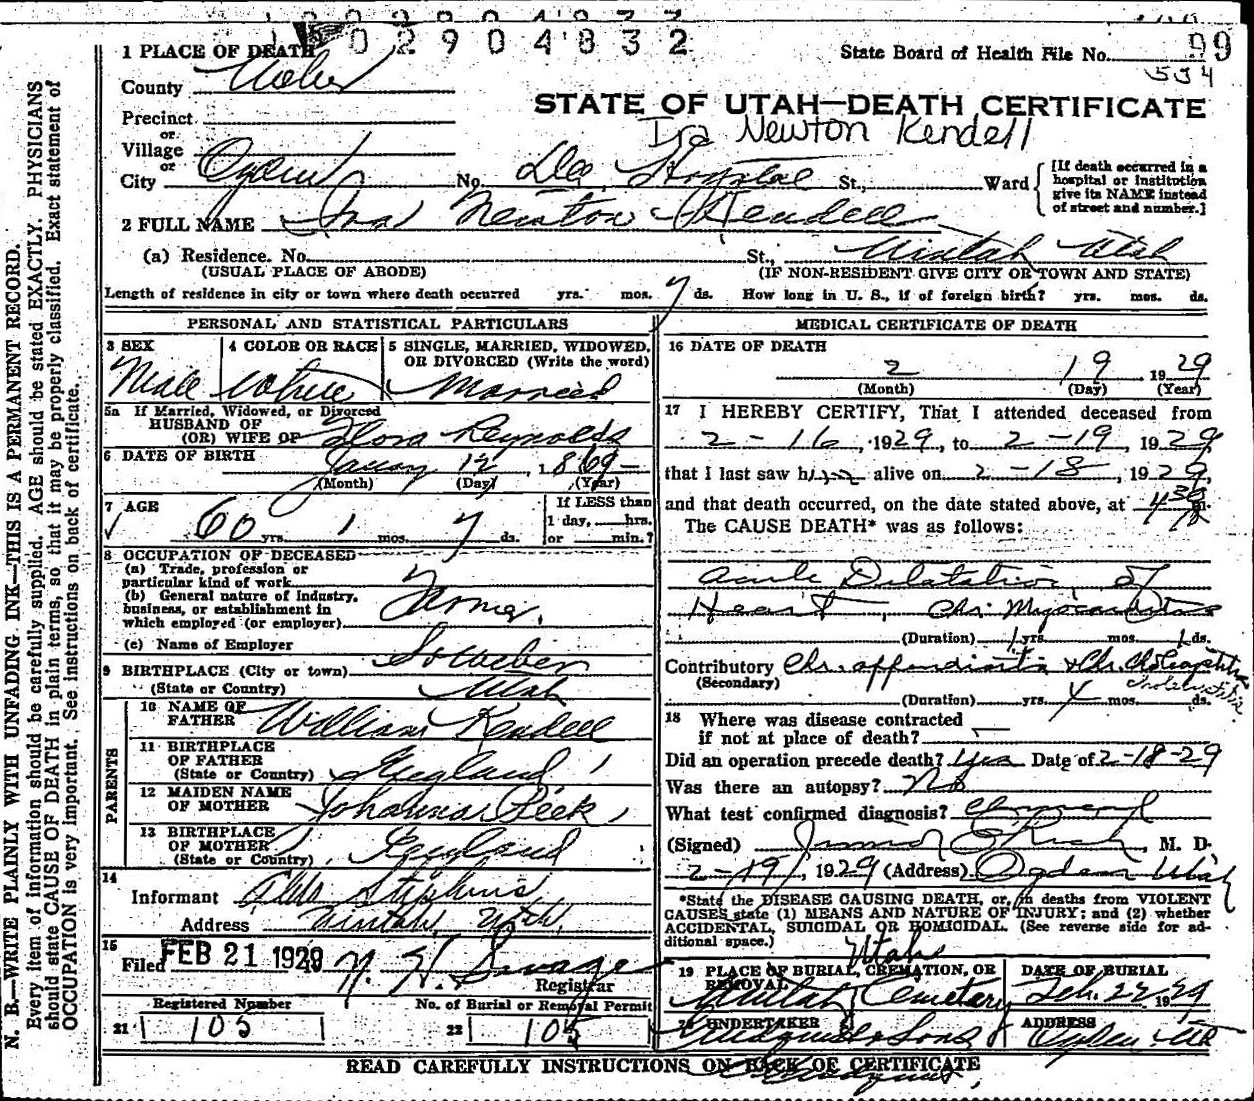 1 0 0 2 9 0 4 8 3 2
1 PLACE OF DEATH
State Board of Health File No. 99
534
County Weber
STATE OF UTAH—DEATH CERTIFICATE
Precinct
Ira Newton Kendell
or
Village
or
City Ogden No. Dee Hospital St., Ward
[If death occurred in a hospital or institution give its NAME instead of street and number.]
2 FULL NAME Ira Newton Kendell
(a) Residence. No. St., Uintah Utah
(USUAL PLACE OF ABODE) (IF NON-RESIDENT GIVE CITY OR TOWN AND STATE)
Length of residence in city or town where death occurred yrs. mos. 7 ds. How long in U. S., if of foreign birth? yrs. mos. ds.
PERSONAL AND STATISTICAL PARTICULARS
3 SEX Male
4 COLOR OR RACE White
5 SINGLE, MARRIED, WIDOWED, OR DIVORCED (Write the word) Married
5a If Married, Widowed, or Divorced
HUSBAND OF
(OR) WIFE OF Flora Reynolds
6 DATE OF BIRTH January 12, 1869
(Month) (Day) (Year)
7 AGE 60 yrs. 1 mos. 7 ds.
If LESS than
1 day, hrs.
or min.?
8 OCCUPATION OF DECEASED
(a) Trade, profession or
particular kind of work
(b) General nature of industry,
business, or establishment in
which employed (or employer) Farmer.
(c) Name of Employer
9 BIRTHPLACE (City or town) So Weber
(State or Country) Utah
PARENTS
10 NAME OF
FATHER William Kendell
11 BIRTHPLACE
OF FATHER
(State or Country) England
12 MAIDEN NAME
OF MOTHER Johanna Peek
13 BIRTHPLACE
OF MOTHER
(State or Country) England
14
Informant Stephens
Address Uintah, Utah,
15
Filed FEB 21 1929 Savage
Registrar
Registered Number No. of Burial or Removal Permit
21 105 22 105
MEDICAL CERTIFICATE OF DEATH
16 DATE OF DEATH
2 19 1929
(Month) (Day) (Year)
17 I HEREBY CERTIFY, That I attended deceased from
2-16, 1929, to 2-19 1929,
that I last saw him alive on 2-18, 1929,
and that death occurred, on the date stated above, at 4 30 m.
The CAUSE DEATH* was as follows:
Acute Dilatation of
Heart, Chr. Myocarditis
(Duration) 1 yrs. mos. 1 ds.
Contributory Chr. appendicitis & Chr.
(Secondary)
(Duration) yrs. 4 mos. ds.
18 Where was disease contracted
if not at place of death?
Did an operation precede death? Yes Date of 2-18-29
Was there an autopsy? No
What test confirmed diagnosis?
(Signed) Rich, M. D.
2-19, 1929 (Address) Ogden Utah
*State the DISEASE CAUSING DEATH, or, in deaths from VIOLENT
CAUSES state (1) MEANS AND NATURE OF INJURY; and (2) whether
ACCIDENTAL, SUICIDAL OR HOMICIDAL. (See reverse side for ad-
ditional space.)
Utah
19 PLACE OF BURIAL, CREMATION, OR
REMOVAL
Uintah Cemetery
DATE OF BURIAL
Feb. 22 1929
20 UNDERTAKER
Lindquist & Sons
ADDRESS
Ogden Ut
READ CAREFULLY INSTRUCTIONS ON BACK OF CERTIFICATE
Lindquist
N. B.—WRITE PLAINLY WITH UNFADING INK—THIS IS A PERMANENT RECORD.
Every item of information should be carefully supplied. AGE should be stated EXACTLY. PHYSICIANS
should state CAUSE OF DEATH in plain terms, so that it may be properly classified. Exact statement of
OCCUPATION is very important. See instructions on back of certificate.